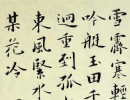 雪霽寒輕
吟艇玉田千
迴重到孤
東風緊水
某花冷